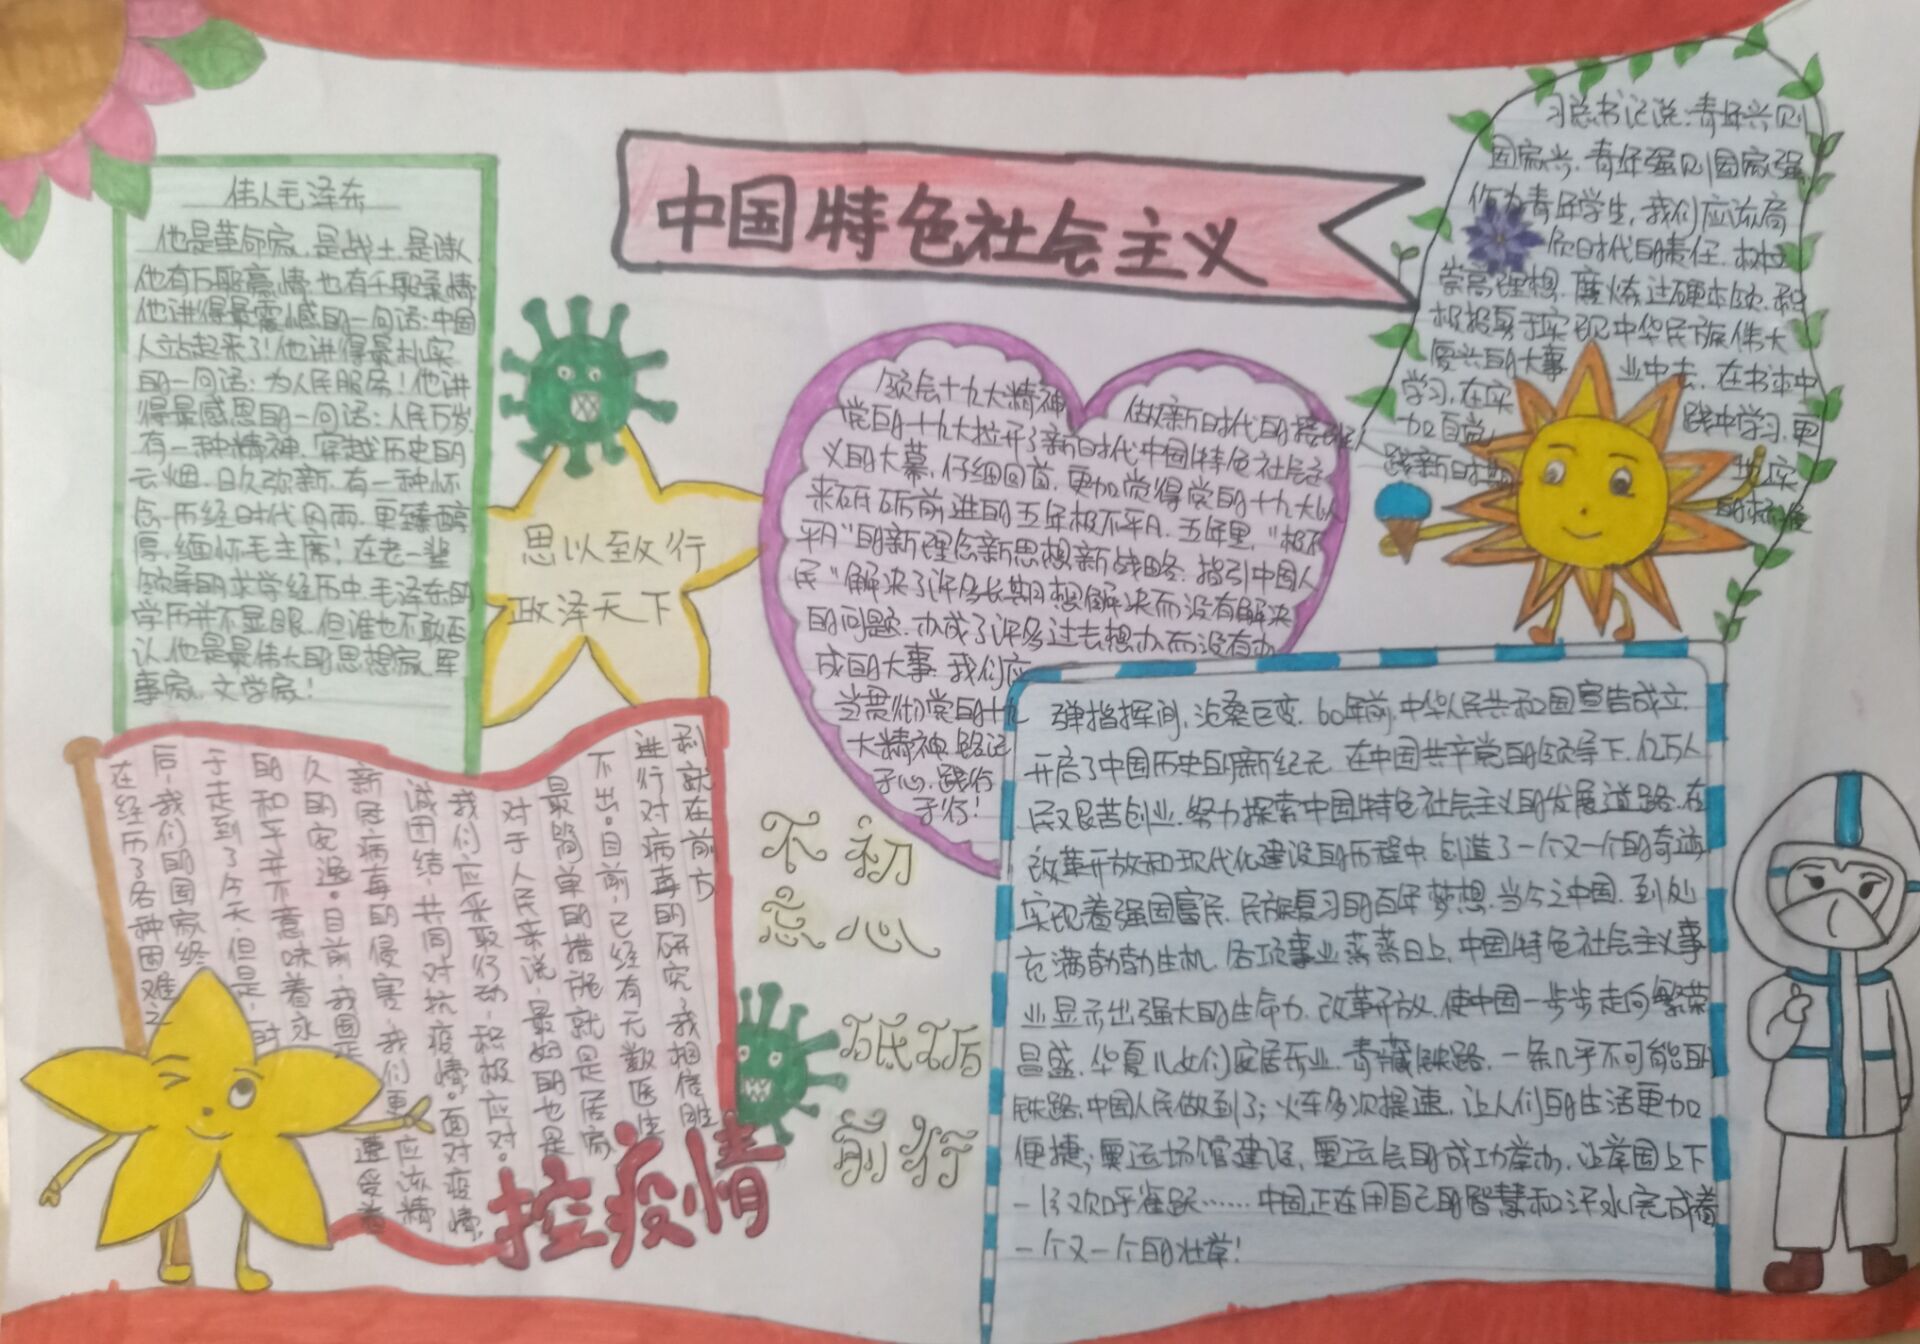 中国特色社会主义
伟人毛泽东
他是革命家,是战士,是诗人
他有万般豪情也有千般柔情
他讲得最震撼的一句话:中国
人站起来了!他讲得最朴实
的一句话:为人民服务!他讲
得最感恩的一句话:人民万岁
有一种精神,穿越历史的
云烟,日久弥新,有一种怀
念,历经时代风雨,更臻醇
厚,缅怀毛主席!在老一辈
领导的求学经历中,毛泽东的
学历并不显眼,但谁也不敢否
认,他是最伟大的思想家、军
事家、文学家!
思以致行
政泽天下
领会十九大精神
做新时代的接班人
党的十九大拉开了新时代中国特色社会主
义的大幕,仔细回首,更加觉得党的十九大以
来砥砺前进的五年极不平凡,五年里,“极不
平凡”的新理念新思想新战略,指引中国人
民“解决了许多长期想解决而没有解决
的问题,办成了许多过去想办而没有办
成的大事,我们应
当贯彻党的十九
大精神,铭记
于心,践行
于行!
习总书记说:青年兴则
国家兴,青年强则国家强,
作为青年学生,我们应该肩
负时代的责任,树立
崇高理想,磨炼过硬本领,积
极投身于实现中华民族伟大
复兴的大事 业中去,在书本中
学习,在实 践中学习,更
加自觉 地实
践新时
弹指挥间,沧桑巨变,60年前,中华人民共和国宣告成立,
开启了中国历史的新纪元,在中国共产党的领导下,亿万人
民艰苦创业,努力探索中国特色社会主义的发展道路,在
改革开放和现代化建设的历程中,创造了一个又一个的奇迹,
实现着强国富民,民族复习的百年梦想,当今之中国,到处
充满勃勃生机,各项事业蒸蒸日上,中国特色社会主义事
业显示出强大的生命力,改革开放,使中国一步步走向繁荣
昌盛,华夏儿女们安居乐业,青藏铁路,一条几乎不可能的
铁路,中国人民做到了;火车多次提速,让人们的生活更加
便捷;奥运场馆建设,奥运会的成功举办,让举国上下
一片欢呼雀跃……中国正在用自己的智慧和汗水完成着
一个又一个的壮举!
在经历了各种困难之
后,我们的国家终
于走到了今天,但是,一时
的和平并不意味着永
久的安逸。目前,我国正
遭受着
新冠病毒的侵害,我们更应该精
诚团结,共同对抗疫情。面对疫情,
我们应采取行动,积极应对。
对于人民来说,最好的也是
最简单的措施就是居家
不出。目前,已经有无数医生
进行对病毒的研究,我相信胜
利就在前方
控疫情
不忘初心
砥砺前行